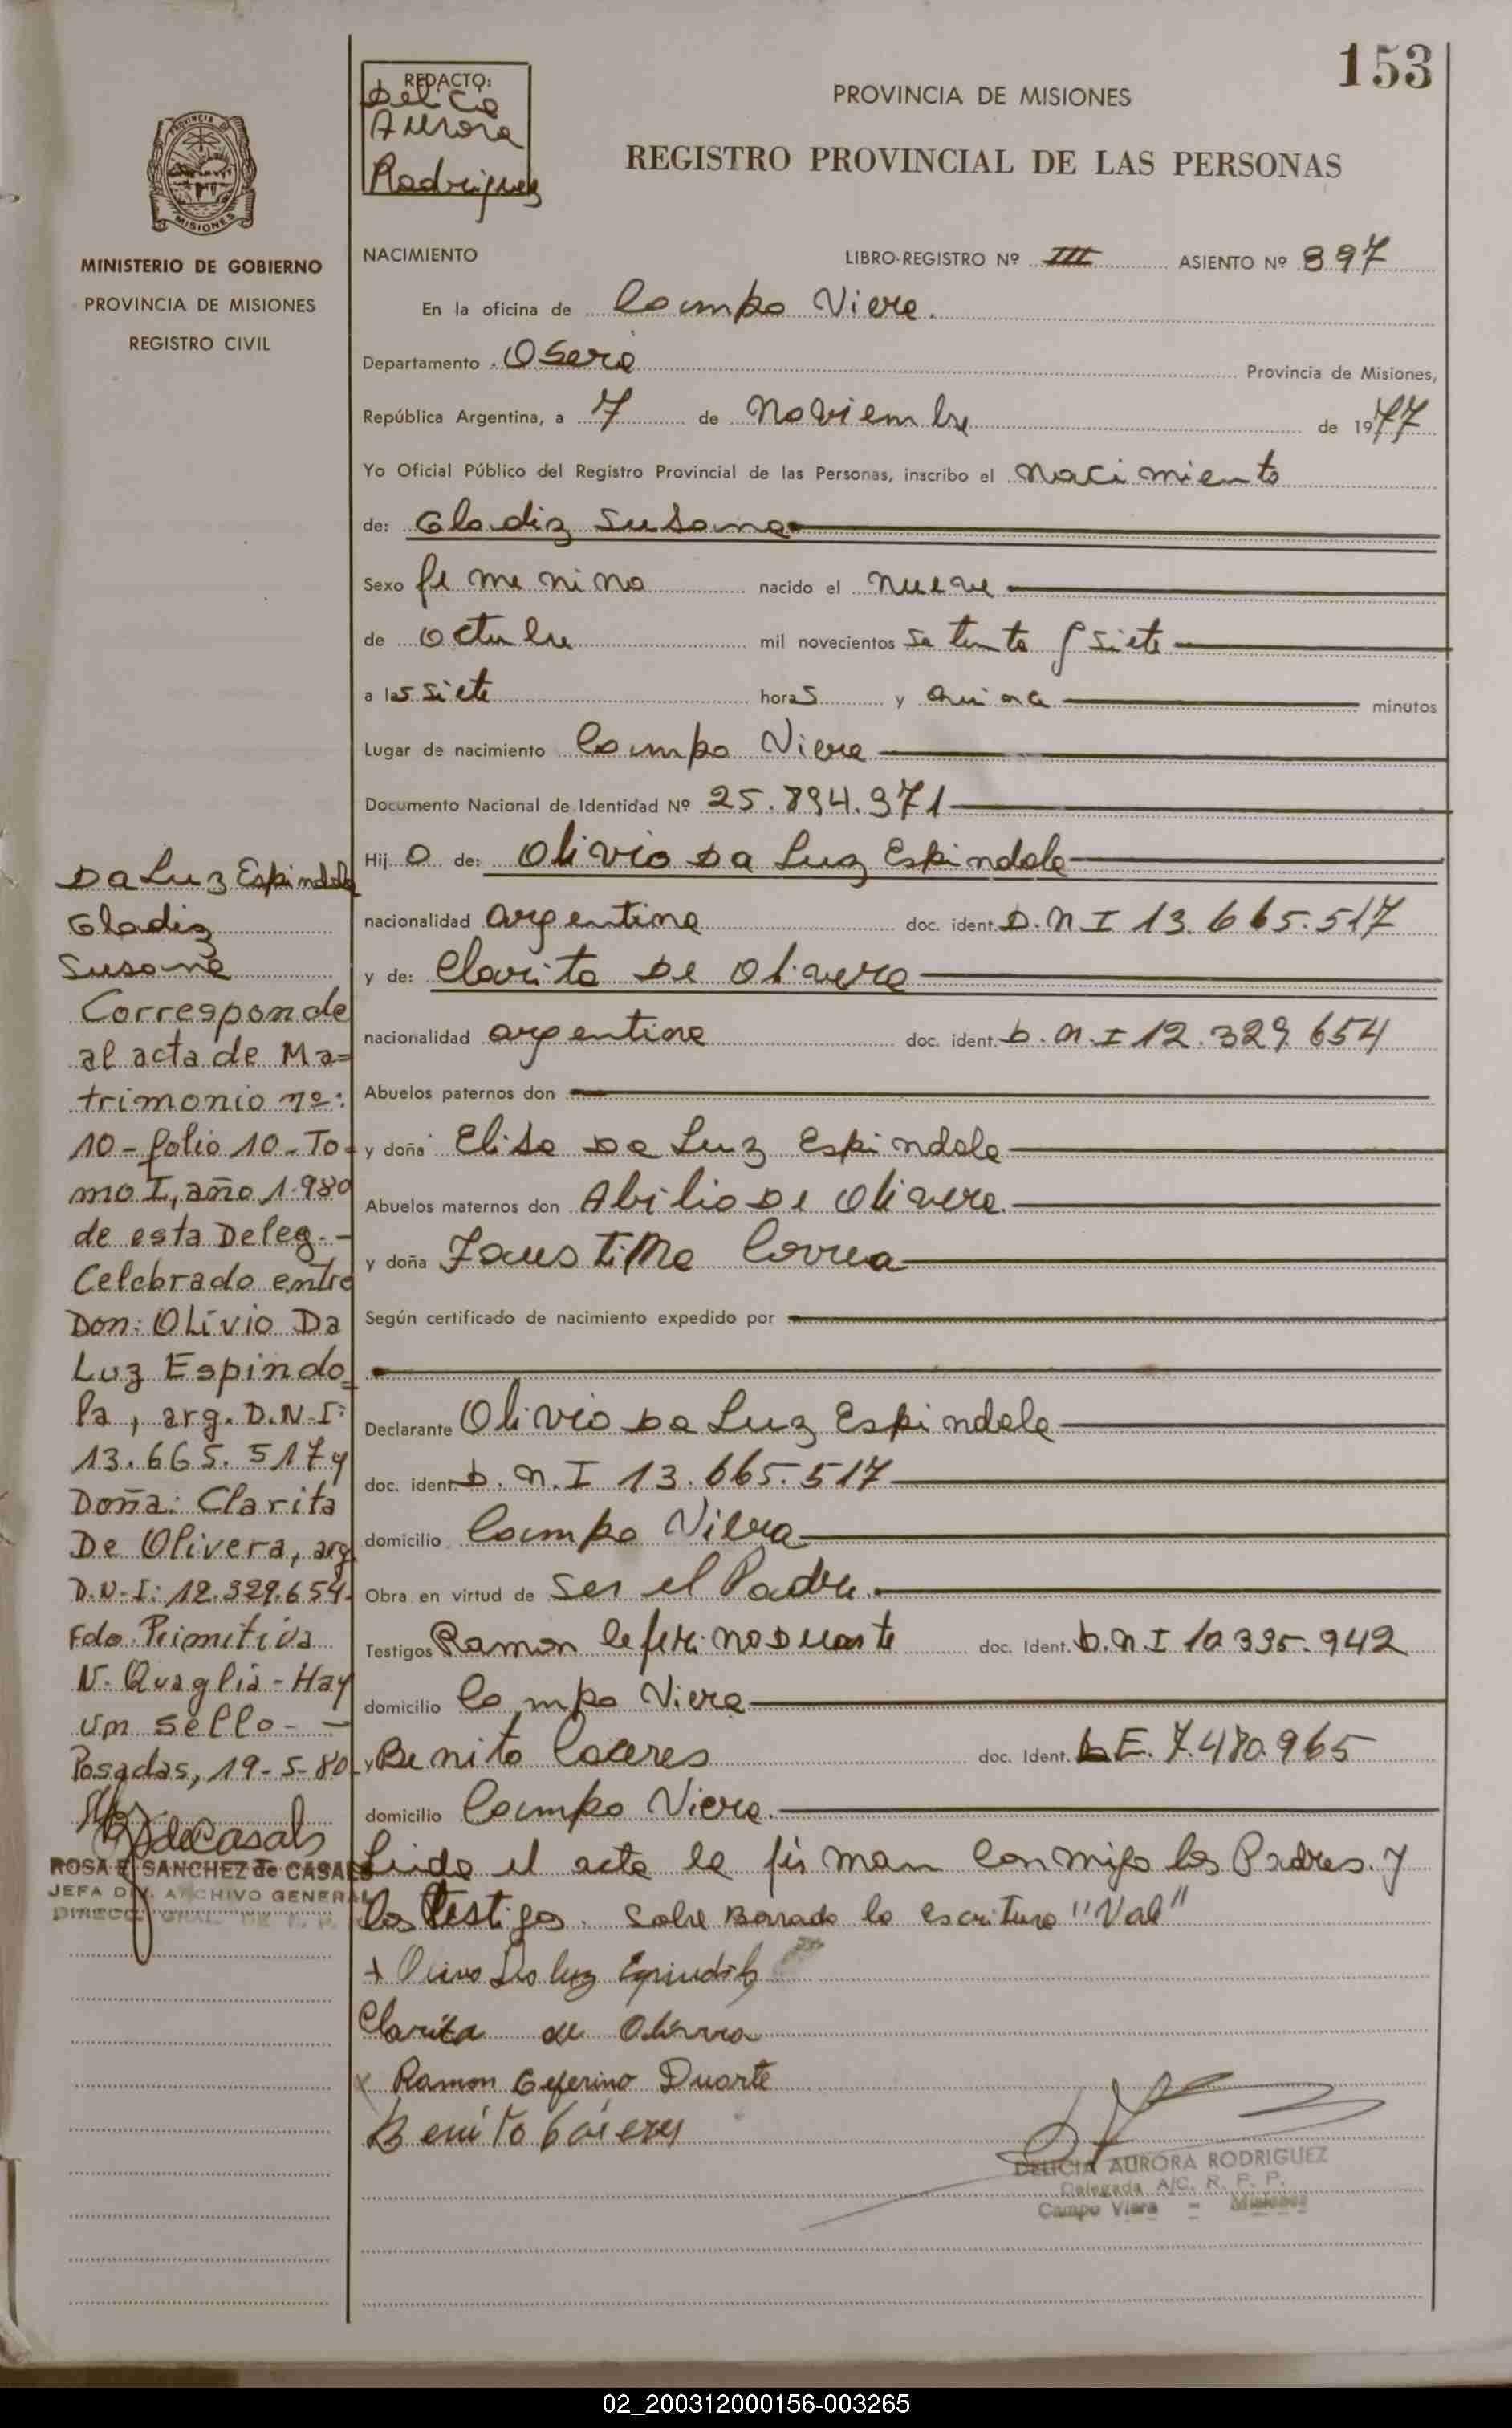 153
REDACTO:
Delicia
Aurora
Rodriguez
PROVINCIA DE MISIONES
REGISTRO PROVINCIAL DE LAS PERSONAS
PROVINCIA DE
MISIONES
MINISTERIO DE GOBIERNO
PROVINCIA DE MISIONES
REGISTRO CIVIL
NACIMIENTO LIBRO-REGISTRO Nº III ASIENTO Nº 897
En la oficina de Campo Viera.
Departamento Oberá Provincia de Misiones,
República Argentina, a 7 de Noviembre de 1977
Yo Oficial Público del Registro Provincial de las Personas, inscribo el Nacimiento
de: Gladiz Susana
Sexo femenino nacido el nueve
de octubre mil novecientos setenta y siete
a las siete horas y quince minutos
Lugar de nacimiento Campo Viera
Documento Nacional de Identidad Nº 25.894.971
Hij O de: Olivio Da Luz Espindola
nacionalidad argentina doc. ident. D.N I 13.665.517
y de: Clarita De Olivera
nacionalidad argentina doc. ident. D.N.I 12.329.654
Abuelos paternos don
y doña Elisa Da Luz Espindola
Abuelos maternos don Abilio De Olivera
y doña Faustina Correa
Según certificado de nacimiento expedido por
Declarante Olivio Da Luz Espindola
doc. ident. D.N.I 13.665.517
domicilio Campo Viera
Obra en virtud de ser el Padre.
Testigos Ramon Ceferino Duarte doc. Ident. D.N.I 10.335.942
domicilio Campo Viera
y Benito Caceres doc. Ident. L.E. 7.480.965
domicilio Campo Viera.
Leida el acta la firman conmigo los Padres y
los testigos. Sobre Borrado la escritura "Vale"
+ Olivio Da luz Espindola
Clarita de Olivera
x Ramon Ceferino Duarte
Benito Cáceres
DELICIA AURORA RODRIGUEZ
Delegada A/C. R. P. P.
Campo Viera - Misiones
Da Luz Espindola
Gladiz
Susana
Corresponde
al acta de Ma=
trimonio nº:
10-folio 10-To-
mo I, año 1.980
de esta Deleg.-
Celebrado entre
Don: Olivio Da
Luz Espindo=
la, arg. D.N.I:
13.665.517 y
Doña: Clarita
De Olivera, arg
D.N.I: 12.329.654.
Fdo. Primitiva
N. Quaglia-Hay
un sello- -
Posadas, 19-5-80
deCasals
ROSA E. SANCHEZ de CASALS
JEFA DIV. ARCHIVO GENERAL
DIRECC. GRAL. DE R. P.
02_200312000156-003265